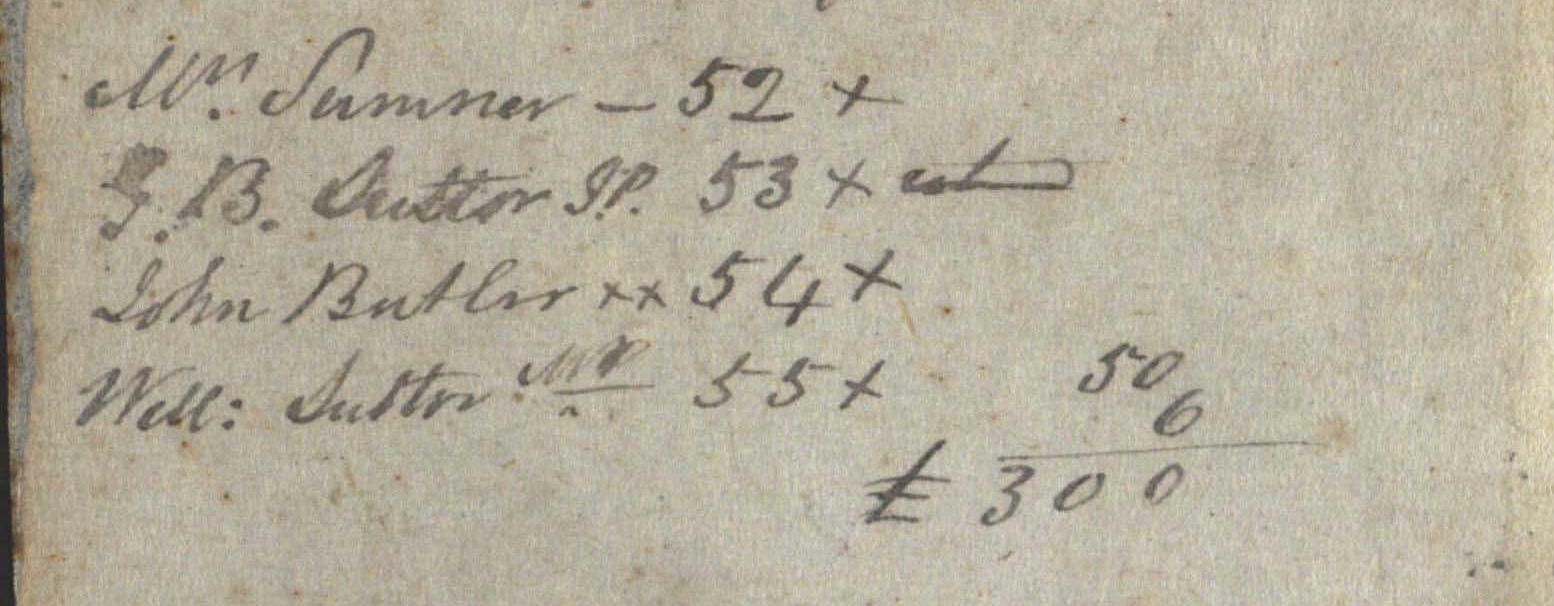 Mr. Sumner — 52 x
G. B. Suttor J.P. 53 x
John Butler xx 54 x
Will: Suttor MP 55 x
50
6
£ 300